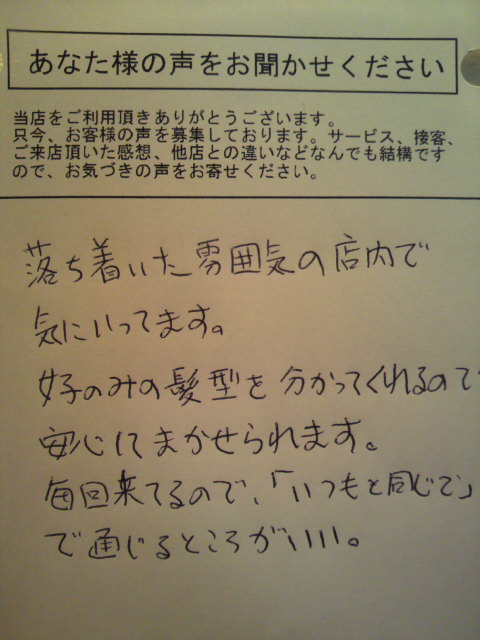 あなた様の声をお聞かせください
当店をご利用頂きありがとうございます。
只今、お客様の声を募集しております。サービス、接客、
ご来店頂いた感想、他店との違いなどなんでも結構です
ので、お気づきの声をお寄せください。
落ち着いた雰囲気の店内で
気にいってます。
好子のみの髪型を分かってくれるので
安心してまかせられます。
毎回来てるので、「いつもと同じで」
で通じるところがいい。